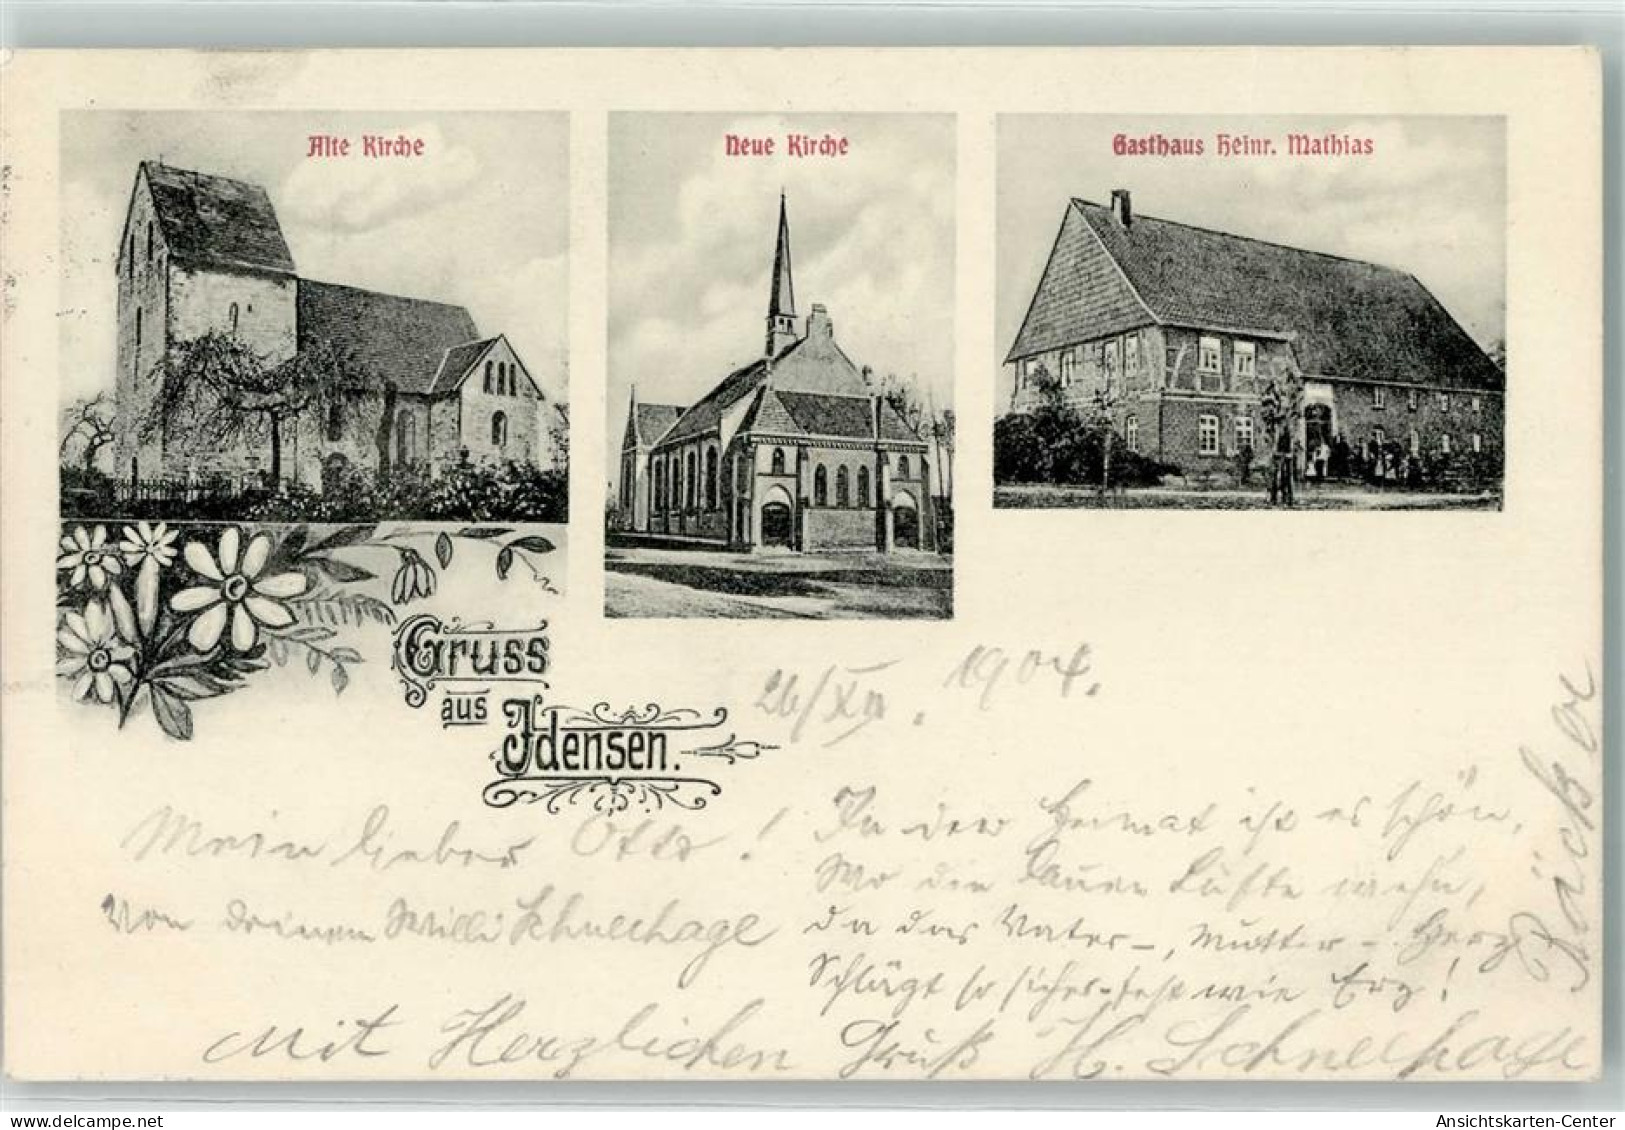 Alte Kirche
Neue Kirche
Gasthaus Heinr. Mathias
Gruss
aus
Idensen.
26/XII. 1904.
Mein lieber Otto!
Von deinem Willi Schneehage
In der Heimat ist es schön,
Wo die lauen Lüfte wehn,
da das Vater-, Mutter-Herz
Schlägt so sicher, fest wie Erz!
Mit Herzlichen Gruß H. Schneehage
Bäcker
Ansichtskarten-Center